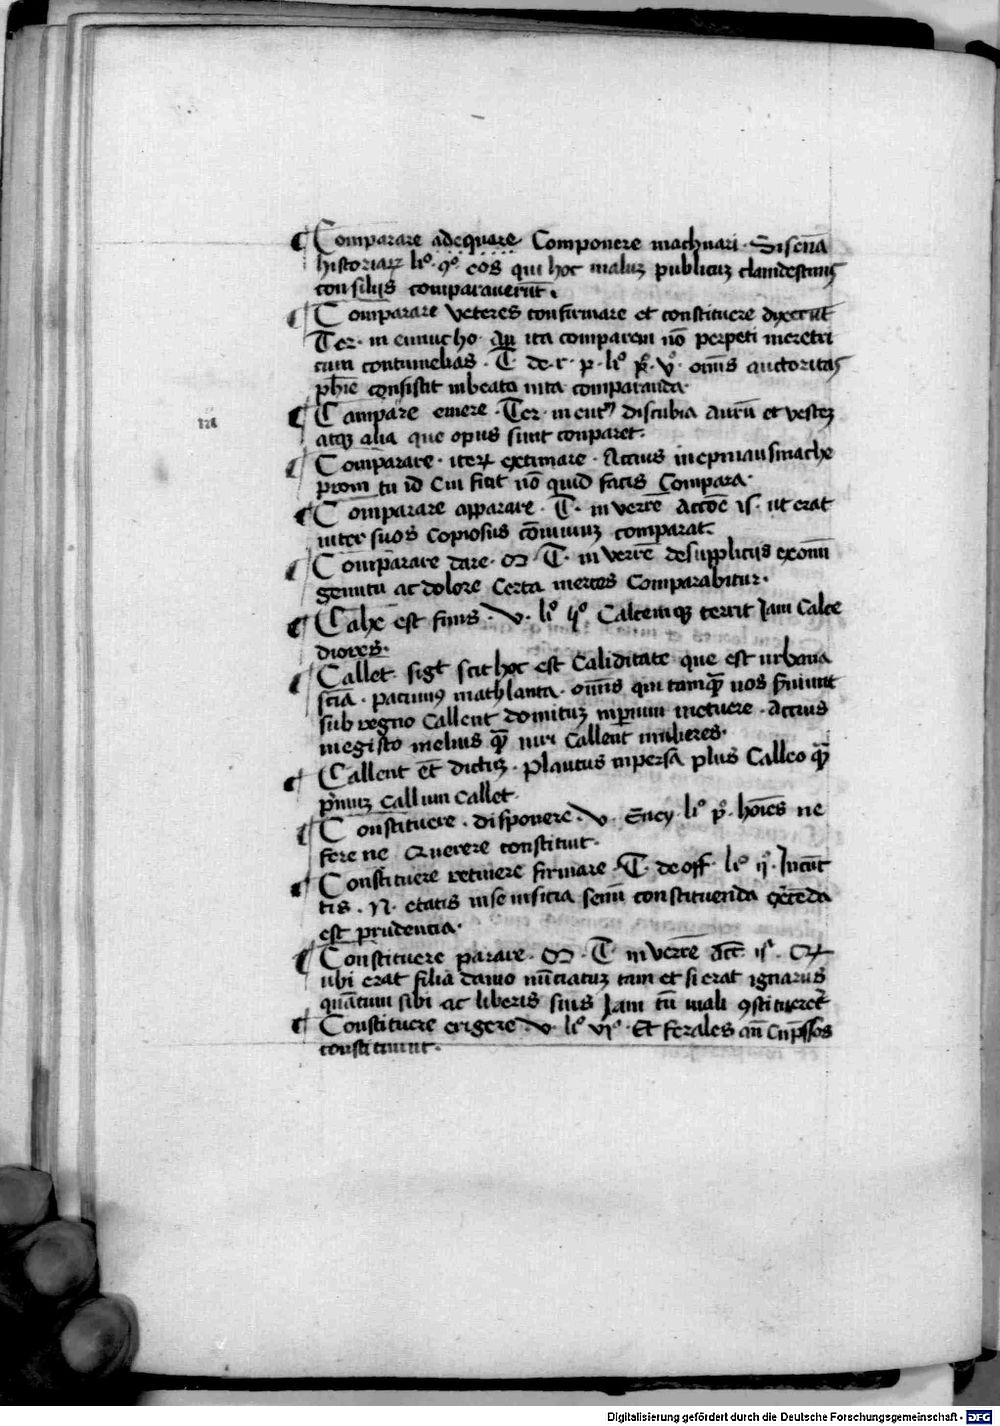 ¶ Comparare adequare Componere machinari · Sisena
historiaꝝ li° · 9° · eos qui hoc maluꝫ publicuꝫ clandestinis
consilijs comparauerūt ·
¶ Comparare veteres confirmare et constituere dixerūt
Ter · in eunucho · An ita comparem nō perpeti meretri
cum contumelias · T · de · r · p · li° · v° · oīns auctoritas
phīe consistit inbeata uita comparanda ·
m
¶ Campare emere · Ter · in eut discubia aurū et vesteꝫ
atqꝫ alia que opus sunt conparet ·
¶ Comparare · iteꝝ extimare · Accius inepinausmache
prom tu id cui fuit nō quid facis Compara ·
¶ Comparare apparare · T · in verrē Accōe is · ut erat
inter suos Copiosus cōuiuiuꝫ comparat ·
¶ Comparare dare · M · T · in verrē desupplicijs exomī
gemitu ac dolore Certa merces Comparabitur ·
¶ Calxe est finis · V · li° iij° Calcemqꝫ territ Iam Calce
diores ·
¶ Callet · sigt scit hoc est Caliditate que est urbana
scīa · pacuuius mathlanta · oms qui tamqꝫ uos p̄niunt
sub regno Callent domituꝫ inperium metuere · Accius
megisto melius qꝫ uiri Callent mulieres ·
¶ Callent et dictuꝫ · plautus inpersa plus Calleo qꝫ
p̄muꝫ callum callet ·
¶ Constituere · disponere · V · Eney · li° p° · hoīes ne
fere ne Querere constituit ·
¶ Constituere retinere firmare · T · de off · li° ij° · Ineūt
tis · N · etatis inse insicia senū constituenda gerēda
est prudentia ·
¶ Constituere parare · M · T · in verrē Act · is ·
ubi erat filia damo nūciatuꝫ tam et si erat ignarus
quātum sibi ac liberis suis Iam tū mali 9stitueret
¶ Constituere erigere · V · li° vi° · Et ferales añ cup̄ssos
constituunt ·
Digitalisierung gefördert durch die Deutsche Forschungsgemeinschaft - DFG